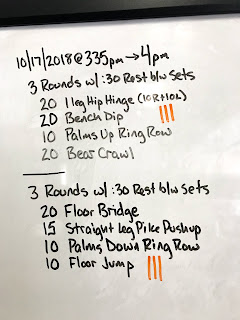 10/17/2018 @ 335pm → 4pm
3 Rounds w/ :30 Rest b/w Sets
20 1 leg Hip Hinge (10R+10L)
20 Bench Dip |||
10 Palms Up Ring Row
20 Bear Crawl
3 Rounds w/ :30 Rest b/w Sets
20 Floor Bridge
15 Straight Leg Pike Pushup
10 Palms Down Ring Row
10 Floor Jump |||